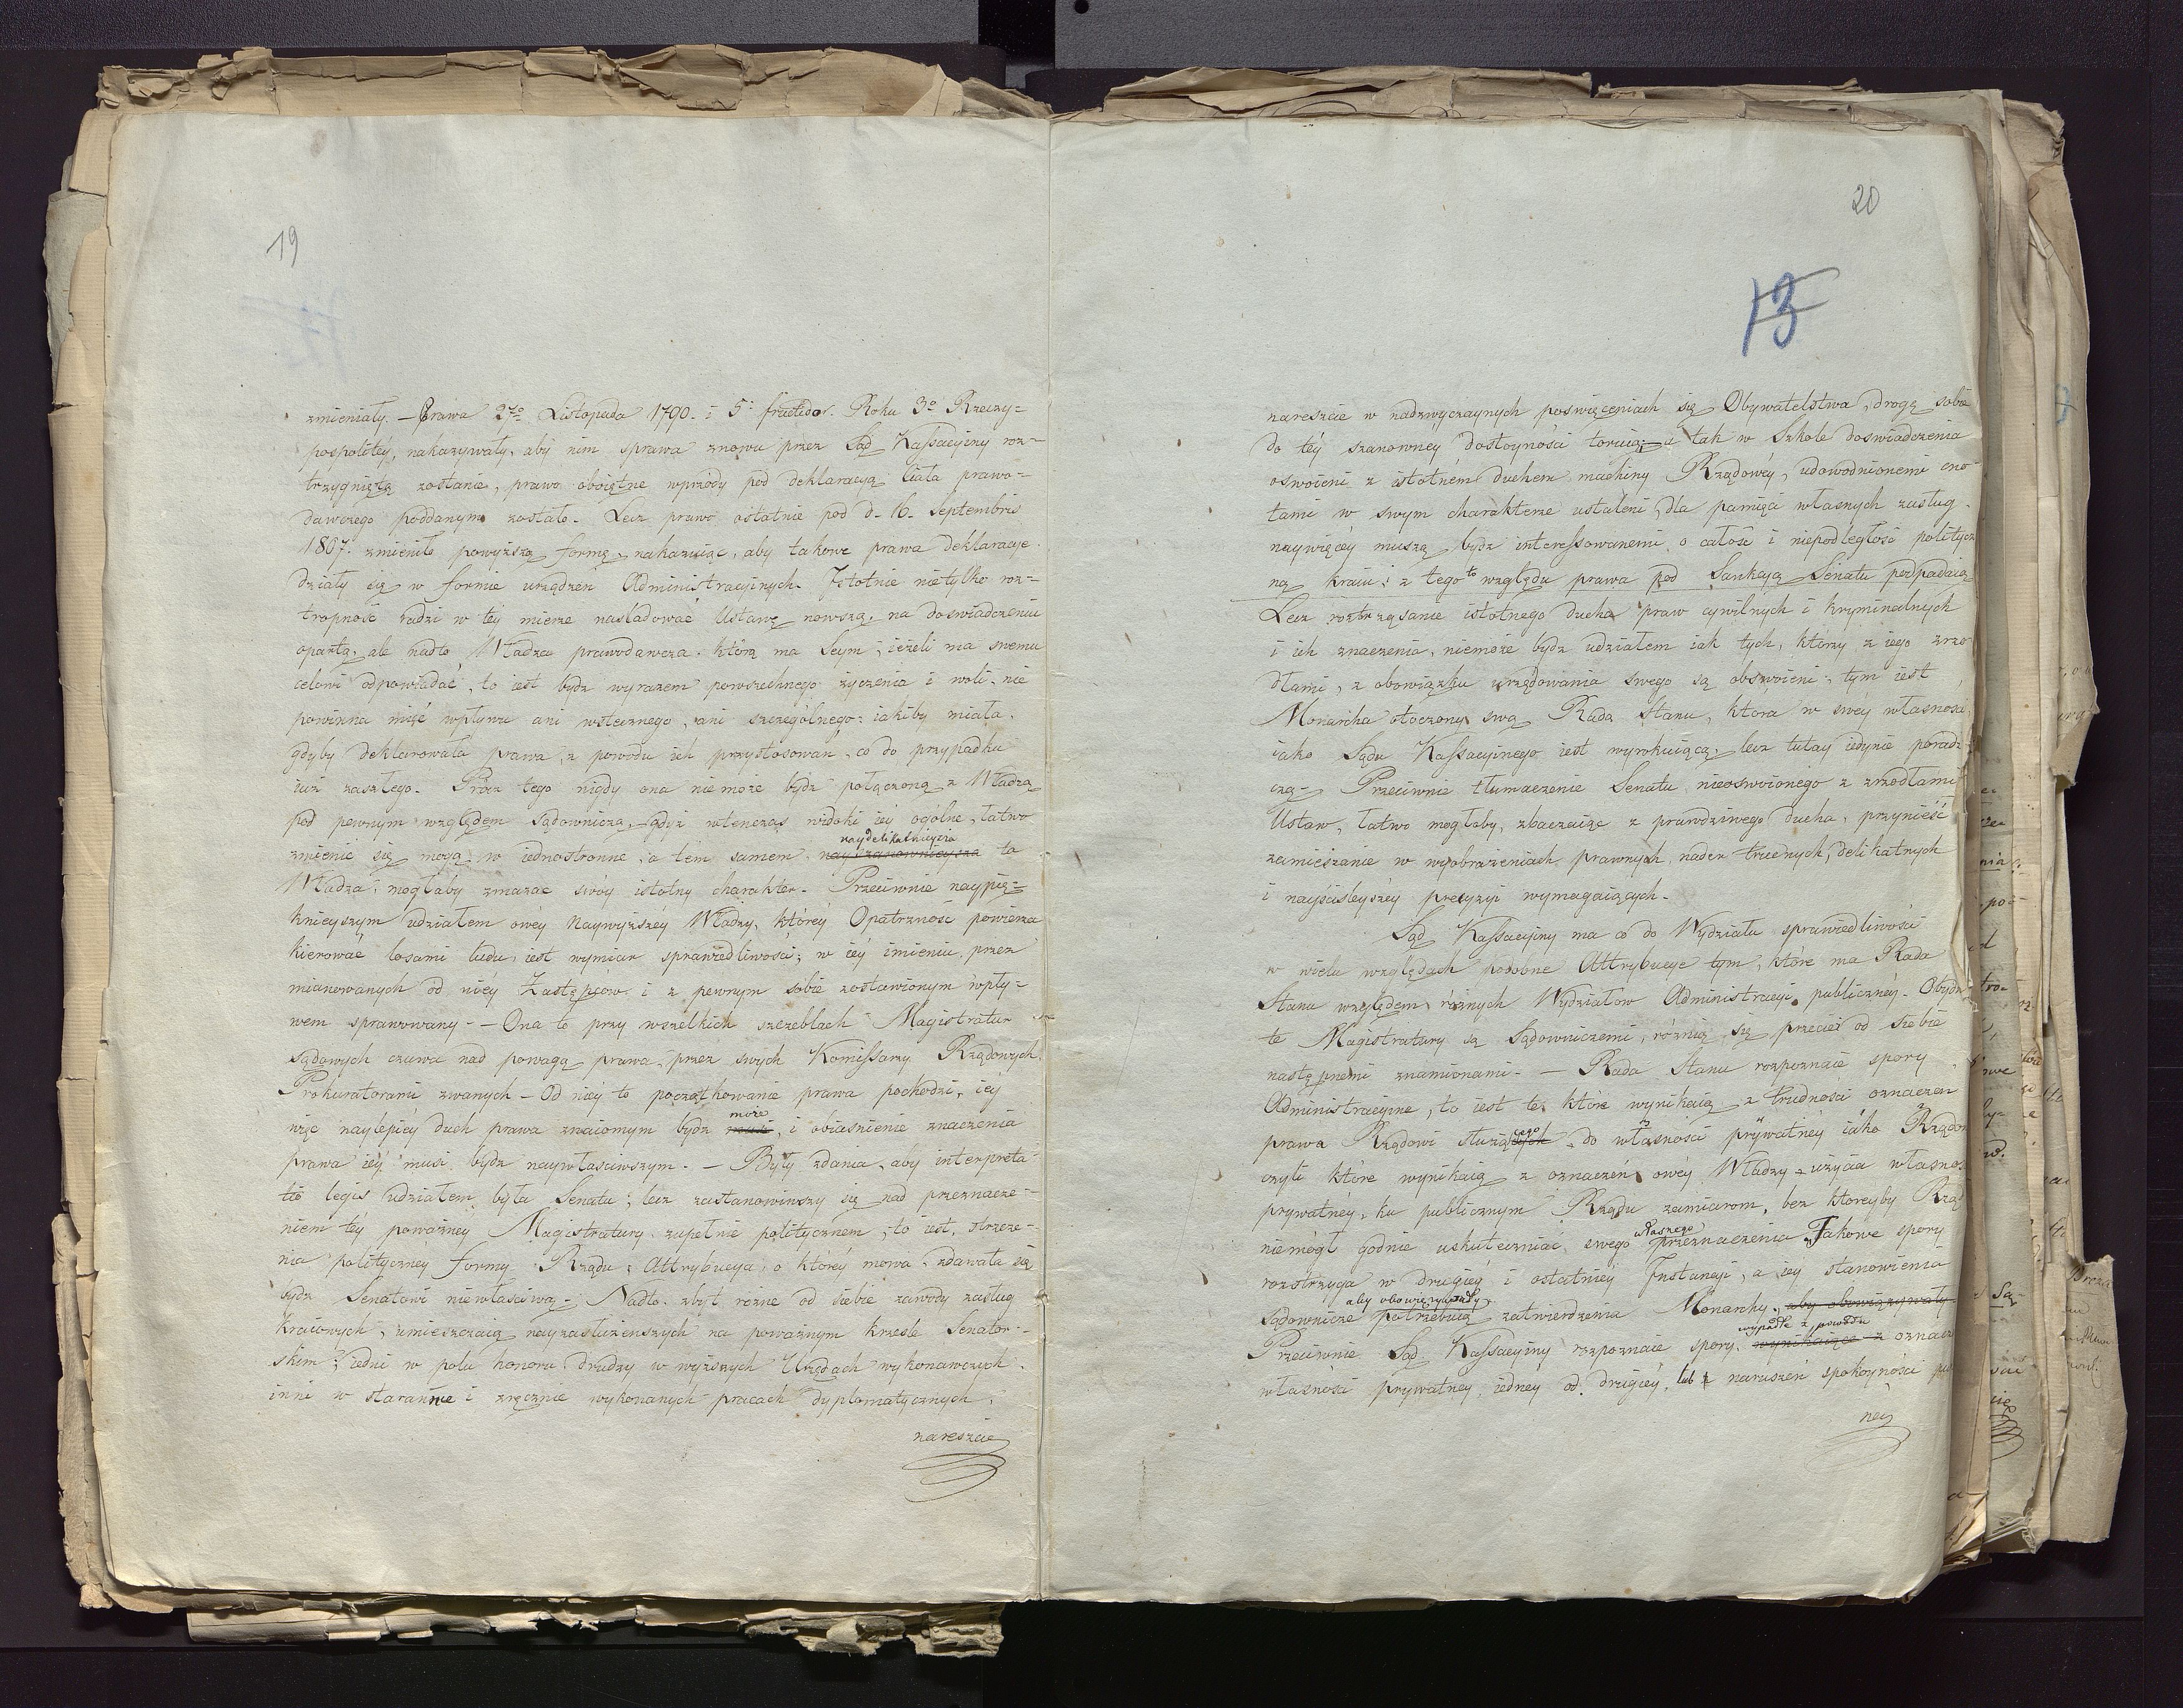 19
zmieniały. — Prawa 27º Listopada 1790. i 5. fructidor. Roku 3º Rzeczy=
pospolitéy, nakazywały, aby nim sprawa znowu przez Sąd Kassacyiny roz=
trzygniętą zostanie, prawo oboiętne wprzódy pod deklaracyą Ciała prawo=
dawczego poddanym zostało. Lecz prawo ostatnie pod d. 16. Septembris
1807. zmieniło powyższą formę, nakazuiąc, aby takowe prawa deklaracye
działy się w formie urządzeń Administracyinych. Istotnie nietylko roz=
tropność radzi w téy mierze naśladować Ustawę nowszą, na doświadczeniu
opartą, ale nadto Władza prawodawcza, którą ma Seym, ieżeli ma swemu
celowi odpowiadać, to iest bydź wyrazem powszechnego życzenia i woli, nie
powinna mieć wpływu ani wstecznego, ani szczególnego: iakiby miała,
gdyby deklarowała prawa, z powodu ich przystosowań, co do przypadku
iuż zaszłego. Prócz tego nigdy ona nie może bydź połączoną z Władzą
pod pewnym względem Sądowniczą, gdyż wtenczas widoki iéy ogólne, łatwo
naydelikatnieysza
zmienić się mogą w iednostronne, a tém samem nayszanownieysza ta
Władza: mogłaby zmazać swóy istotny charakter. Przeciwnie naypię=
knieyszym udziałem owéy Naywyższéy Władzy, któréy Opatrzność powierza
kierować losami ludu, iest wymiar sprawiedliwości; w iéy imieniu, przez
mianowanych od niéy Zastępców i z pewnym sobie zostawionym wpły=
wem sprawowany. — Ona to przy wszelkich szczeblach Magistratur
sądowych czuwa nad powagą prawa, przez swych Komissarzy Rządowych,
Prokuratorami zwanych — Od niéy to początkowanie prawa pochodzi, iéy
może
więc naylepiéy duch prawa znaiomym bydź musi, i obiaśnienie znaczenia
prawa iéy musi bydź naywłaściwszym. — Były zdania, aby interpreta=
tio legis udziałem była Senatu; lecz zastanowiwszy się nad przeznacze=
niem téy poważnéy Magistratury zupełnie polityczném, to iest, strzeże=
nia polityczney formy Rządu; Attrybucya, o któréy mowa, zdawała się
bydź Senatowi niewłaściwą. Nadto, zbyt różne od siebie zawody zasług
kraiowych, umieszczaią nayzasłużeńszych na poważnym krześle Senator=
skim; iedni w polu honoru, drudzy w wyższych Urzędach wykonawczych,
inni w starannie i zręcznie wykonanych pracach dyplomatycznych,
nareszcie
20
13
nareszcie w nadzwyczaynych poswięceniach się Obywatelstwa, drogę sobie
do téy szanowney dostoyności toruią; a tak w Szkole doświadczenia
oswoieni z istotném duchem machiny Rządowéy, udowodnionemi cno=
tami w swym charakterze ustaleni, dla pamięci własnych zasług,
naywięcéy muszą bydź interessowanemi, o całość i niepodległość politycz
ną kraiu: z tego to względu prawa pod Sankcyą Senatu podpadaią
Lecz roztrząsanie istotnego ducha praw cywilnych i kryminalnych
i ich znaczenia, niemoże bydź udziałem iak tych, którzy z iego źrzó
dłami, z obowiązku urzędowania swego są obswoieni, tym iest
Monarcha otoczony swą Radą Stanu, która w swéy własności
iako Sądu Kassacyinego, iest wyrokuiącą; lecz tutay iedynie poradz
czą. Przeciwnie tłumaczenie Senatu nieoswoionego z źrzodłami
Ustaw, łatwo mogłoby, zbaczaiąc z prawdziwego ducha, przynieść
zamieszanie w wyobrażeniach prawnych nader trudnych, delikatnych
i nayściśleyszéy precyzyi wymagaiących.
Sąd Kassacyiny ma co do Wydziału sprawiedliwości
w wielu względach podobne Attrybucye tym, które ma Rada
Stanu względem różnych Wydziałów Administracyi publicznéy. Obydwie
te Magistratury są Sądowniczemi, różnią się przecież od siebie
następnemi znamionami. — Rada Stanu rozpoznaie spory
Administracyine, to iest te, które wynikaią z trudności oznaczeń
prawa Rządowi służącego do własności prywatnéy iako Rządow
czyli które wynikaią z oznaczeń owéy Władzy użycia własnoś
prywatnéy, ku publicznym Rządu zamiarom, bez któreyby Rząd
własnego
niemógł godnie uskuteczniać swego przeznaczenia. Takowe spory
rozstrzyga w drugiéy i ostatniéy Instancyi, a iéy stanowienia
aby obowiązywały
sądownicze potrzebuią zatwierdzenia Monarchy, aby obowiązywały.
wypadłe z powodu
Przeciwnie Sąd Kassacyiny rozpoznaie spory, wynikaiące z oznacz
własności prywatney iedney od drugiéy, lub z naruszeń spokoyności pu
ney